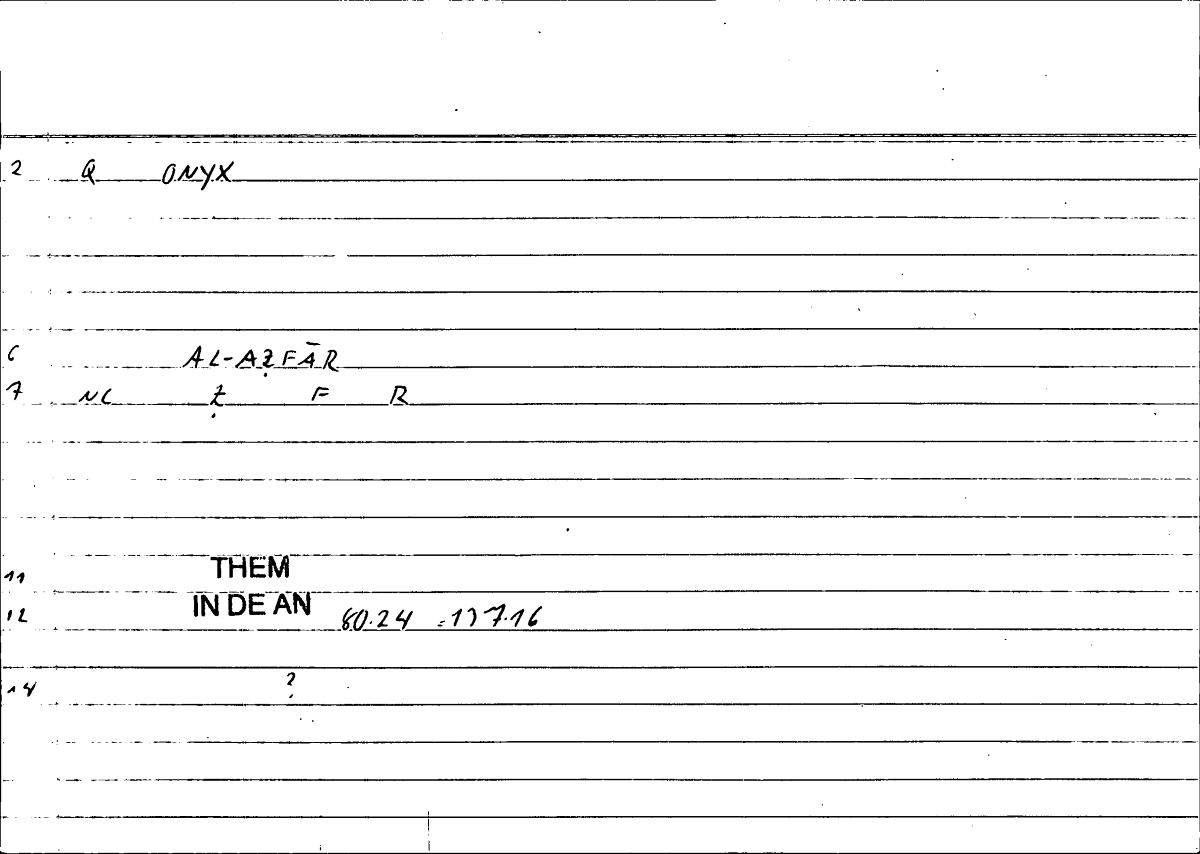 2 Q ONYX
6 AL-AẒFĀR
7 NC Ẓ F R
11 THEM
12 IN DE AN 80.24 =177.16
14 ?